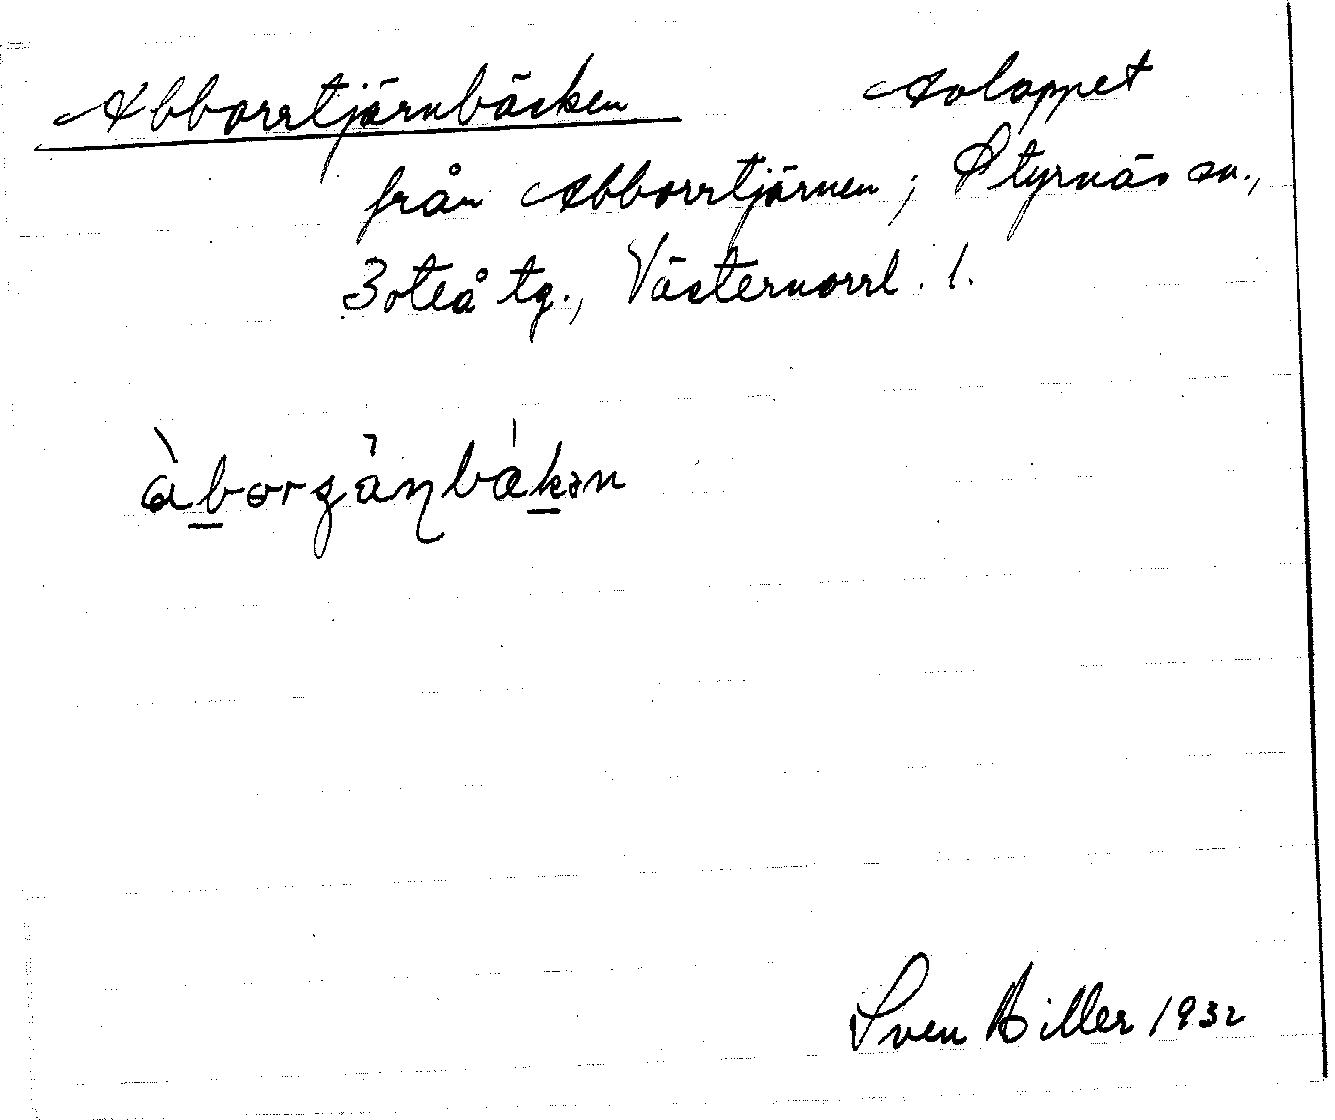 Abborrtjärnbäcken Avloppet
från Abborrtjärnen; Styrnäs sn.,
Boteå tg., Västernorrl. l.
Sven Hiller 1932